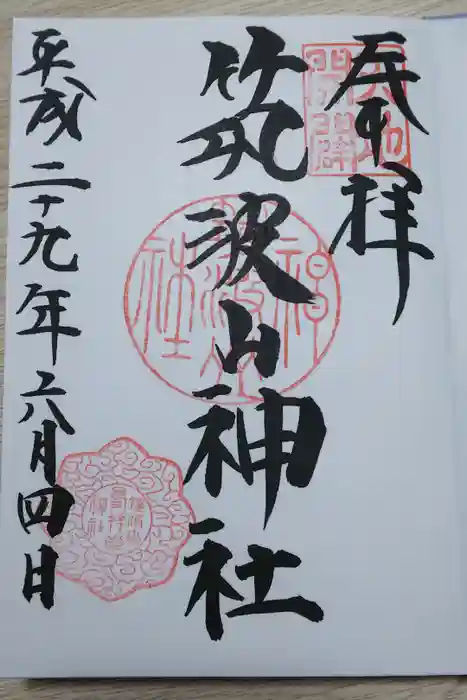 奉拝
天地開闢
筑波山神社
筑波山神社
平成二十九年六月四日